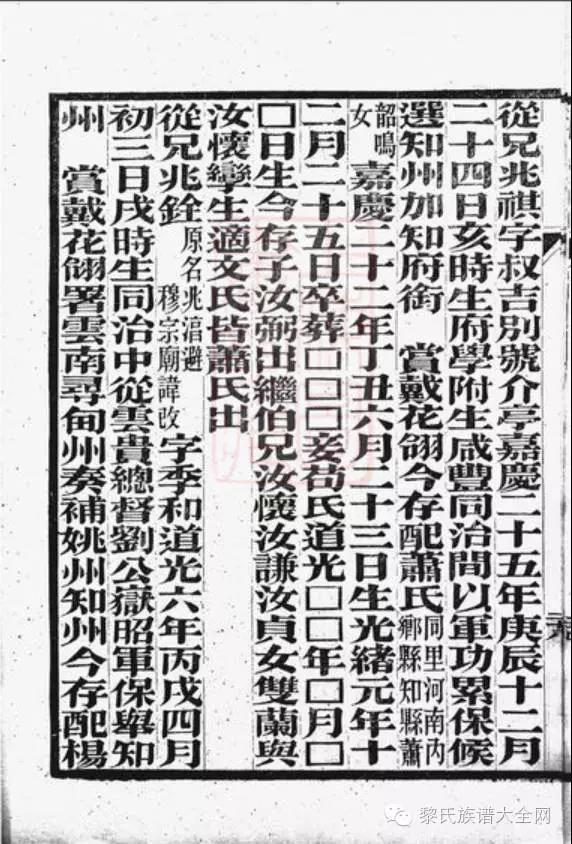 從兄兆祺字叔吉別號介亭嘉慶二十五年庚辰十二月
二十四日亥時生府學附生咸豐同治間以軍功累保候
選知州加知府銜　賞戴花翎今存配蕭氏同里河南內鄉縣知縣蕭
韶鳴女嘉慶二十二年丁丑六月二十三日生光緒元年十
二月二十五日卒葬□□□妾苟氏道光□□年□月□
□日生今存子汝弼出繼伯兄汝懷汝謙汝貞女雙蘭與
汝懷孿生適文氏皆蕭氏出
從兄兆銓原名兆淐避穆宗廟諱改字季和道光六年丙戌四月
初三日戌時生同治中從雲貴總督劉公嶽昭軍保舉知
州　賞戴花翎署雲南尋甸州奏補姚州知州今存配楊
黎氏族谱大全网